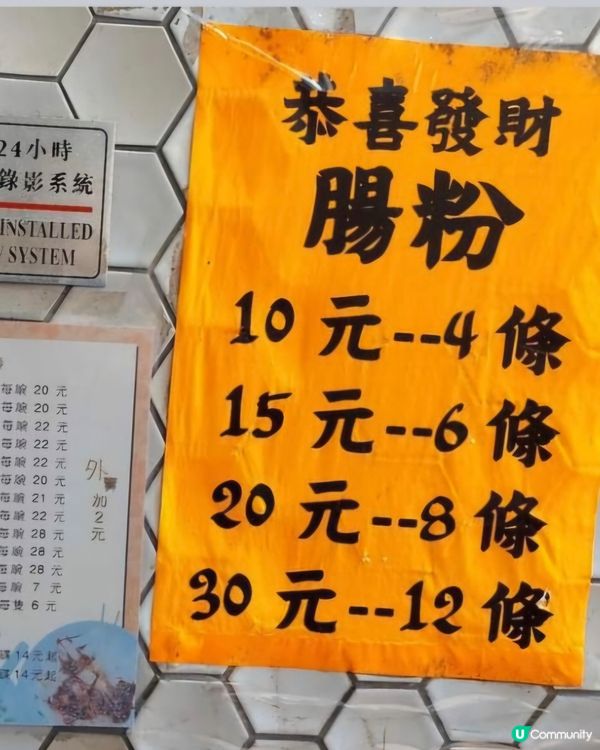 恭喜發財
腸粉
10元--4條
15元--6條
20元--8條
30元--12條
24小時
錄影系統
INSTALLED
SYSTEM
每碗 20 元
每碗 20 元
每碗 22 元
每碗 22 元
每碗 22 元
每碗 20 元
每碗 21 元
每碗 22 元
每碗 28 元
每碗 28 元
每碗 28 元
每碗 7 元
每隻 6 元
外
加2元
碟 14元起
碟 14元起
U Community